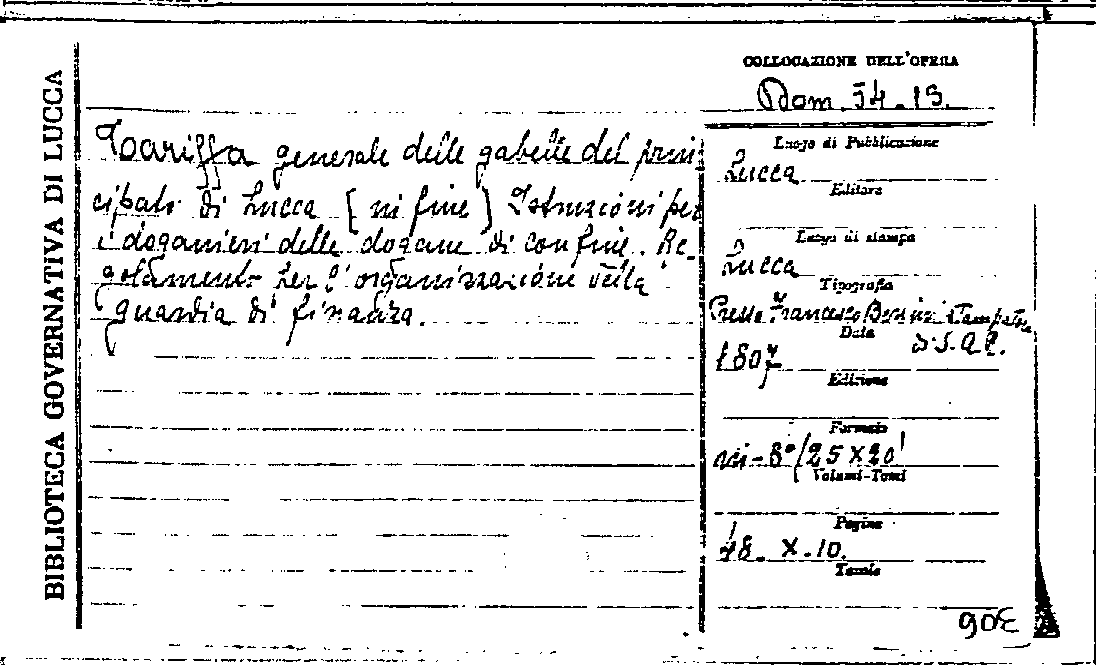 BIBLIOTECA GOVERNATIVA DI LUCCA
COLLOCAZIONE DELL'OPERA
Dom. 54.19.
Tariffa generale delle gabelle del prin
cipato di Lucca [in fine] Istruzioni per
i doganieri delle dogane di confine. Re-
golamento per l'organizzazione della
guardia di finanza.
Luogo di Pubblicazione
Lucca
Editore
Luogo di stampa
Lucca
Tipografia
Presso Francesco Bertini Stampatore
Data
1807
Edizione
Formato
in-8° (25X20)
Volumi-Tomi
Pagine
48. X.10.
Tavole